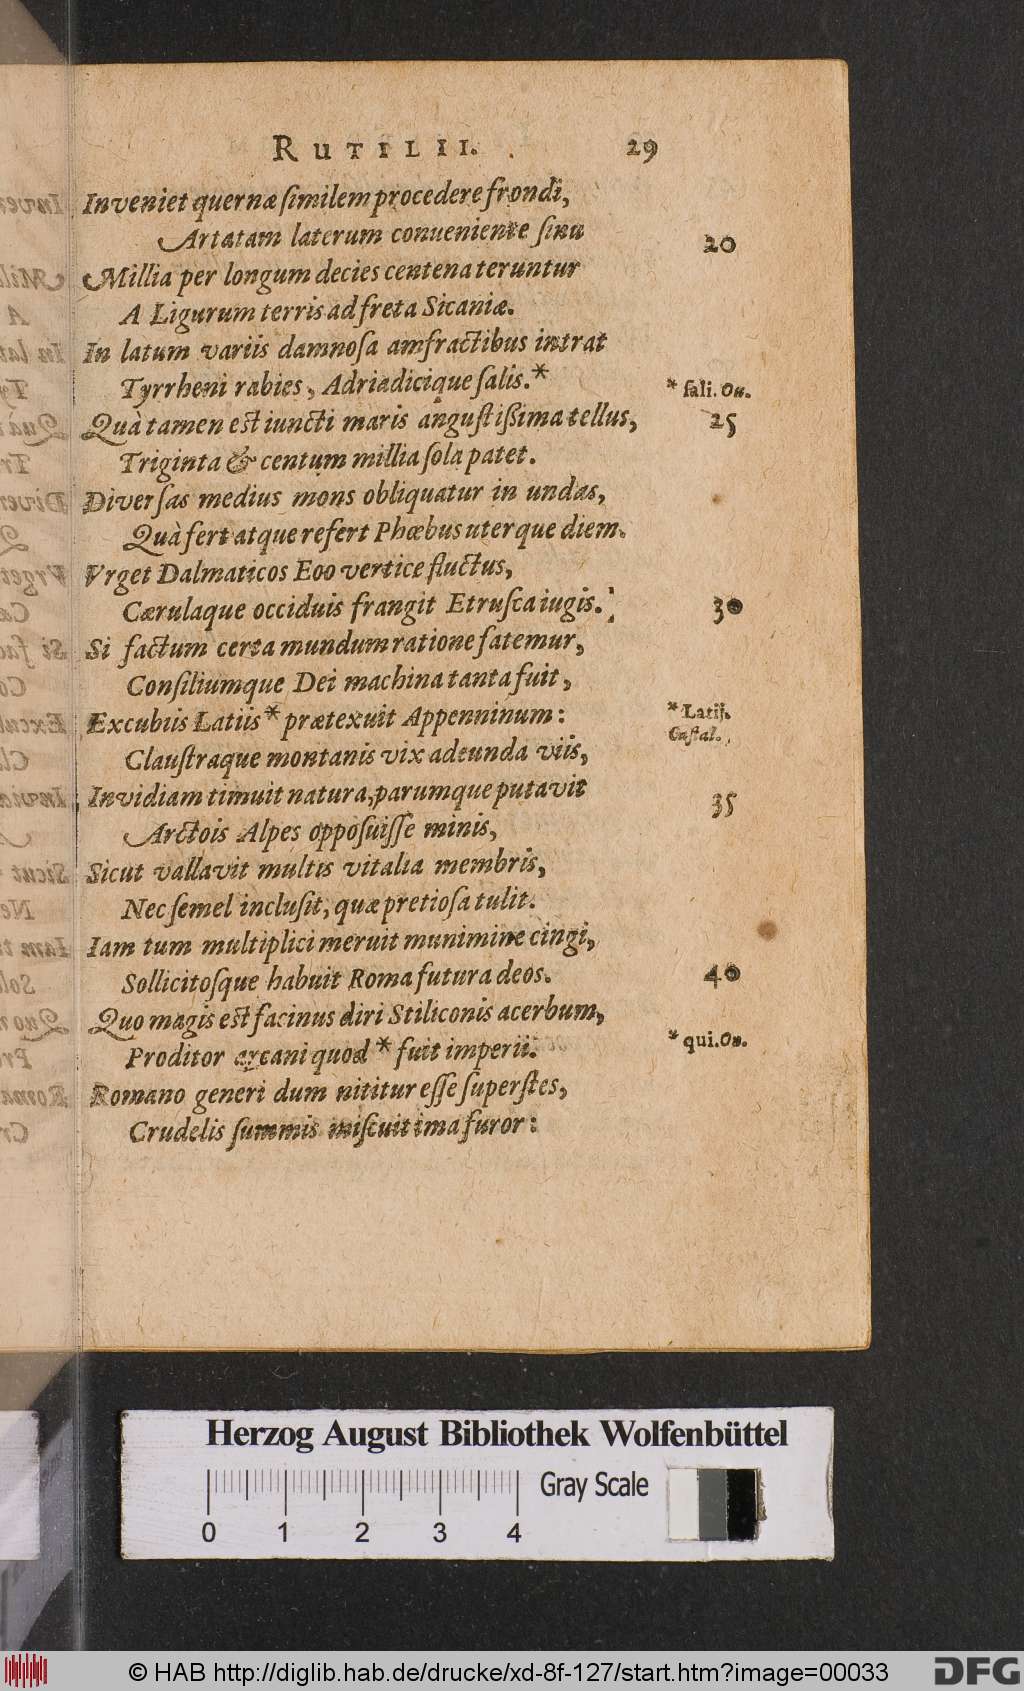 RUTILII. 29
Inveniet quernæ ſimilem procedere frondi,
Artatam laterum conueniente ſinu 20
Millia per longum decies centena teruntur
A Ligurum terris ad freta Sicaniæ.
In latum variis damnoſa amfractibus intrat
Tyrrheni rabies, Adriadicique ſalis.* * ſali. On.
Quà tamen est iuncti maris anguſtißima tellus, 25
Triginta & centum millia ſola patet.
Diverſas medius mons obliquatur in undas,
Quà fert atque refert Phœbus uterque diem.
Vrget Dalmaticos Eoo vertice fluctus,
Cærulaque occiduis frangit Etruſca iugis. 30
Si factum certa mundum ratione fatemur,
Conſiliumque Dei machina tanta fuit,
Excubiis Latiis* prætexuit Appenninum: * Latij. Caſtal.
Clauſtraque montanis vix adeunda viis,
Invidiam timuit natura, parumque putavit 35
Arctois Alpes oppoſuiſſe minis,
Sicut vallavit multis vitalia membris,
Nec ſemel incluſit, quæ pretioſa tulit.
Iam tum multiplici meruit munimine cingi,
Sollicitoſque habuit Roma futura deos. 40
Quo magis est facinus diri Stiliconis acerbum,
Proditor arcani quod * fuit imperii. * qui. On.
Romano generi dum nititur eſſe ſuperſtes,
Crudelis ſummis miſcuit ima furor:
Herzog August Bibliothek Wolfenbüttel
Gray Scale
0 1 2 3 4
© HAB http://diglib.hab.de/drucke/xd-8f-127/start.htm?image=00033
DFG